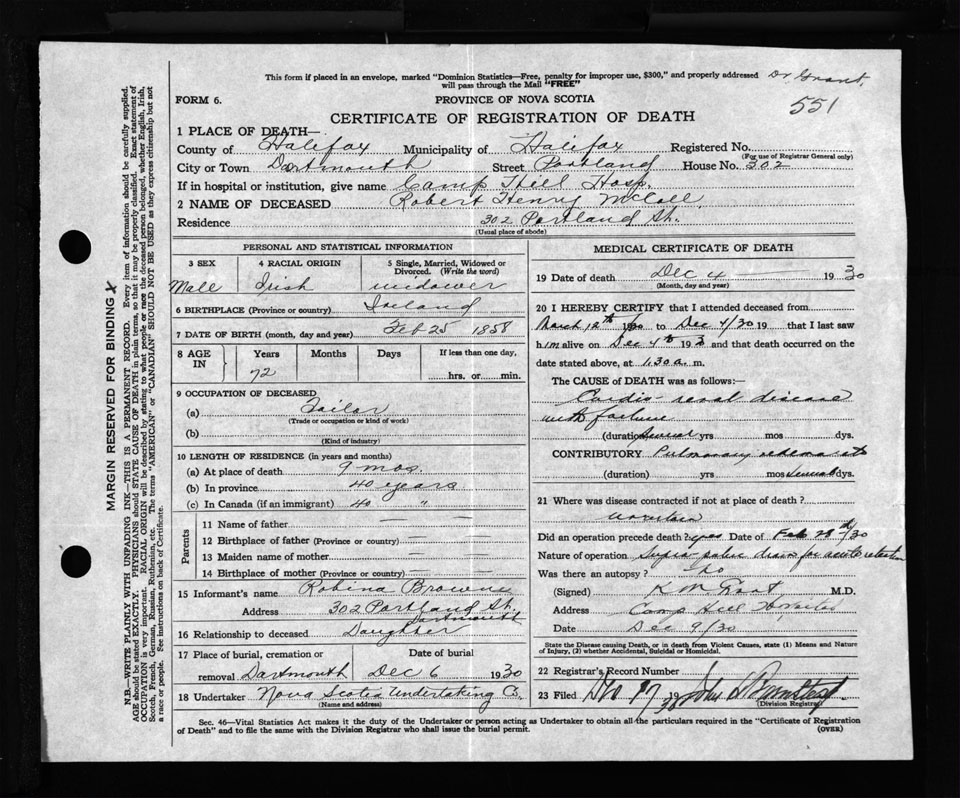 This form if placed in an envelope, marked "Dominion Statistics—Free, penalty for improper use, $300," and properly addressed
will pass through the Mail "FREE"
Dr Grant,
551
FORM 6.
PROVINCE OF NOVA SCOTIA
CERTIFICATE OF REGISTRATION OF DEATH
1 PLACE OF DEATH—
County of Halifax Municipality of Halifax Registered No.
(For use of Registrar General only)
City or Town Dartmouth Street Portland House No. 302
If in hospital or institution, give name Camp Hill Hosp.
2 NAME OF DECEASED Robert Henry McColl
Residence 302 Portland St.
(Usual place of abode)
PERSONAL AND STATISTICAL INFORMATION
3 SEX 4 RACIAL ORIGIN 5 Single, Married, Widowed or
Divorced. (Write the word)
Male Irish widower
6 BIRTHPLACE (Province or country) Ireland
7 DATE OF BIRTH (month, day and year) Feb 25 1858
8 AGE IN Years Months Days If less than one day,
72 hrs. or min.
9 OCCUPATION OF DECEASED
(a) Tailor
(Trade or occupation or kind of work)
(b)
(Kind of industry)
10 LENGTH OF RESIDENCE (in years and months)
(a) At place of death 9 mos.
(b) In province 40 years
(c) In Canada (if an immigrant) 40 "
Parents
11 Name of father — —
12 Birthplace of father (Province or country) — —
13 Maiden name of mother — —
14 Birthplace of mother (Province or country) — —
15 Informant's name Robina Browne
Address 302 Portland St.
Dartmouth
16 Relationship to deceased Daughter
17 Place of burial, cremation or Date of burial
removal Dartmouth Dec 6 1930
18 Undertaker Nova Scotia Undertaking Co.
(Name and address)
MEDICAL CERTIFICATE OF DEATH
19 Date of death Dec 4 — 1930
(Month, day and year)
20 I HEREBY CERTIFY that I attended deceased from
March 12th 1930 to Dec 4/30 19 that I last saw
him alive on Dec 4th 193 and that death occurred on the
date stated above, at 1.30 a. m.
The CAUSE of DEATH was as follows:—
Cardio-renal disease
with failure
(duration) Several yrs mos dys.
CONTRIBUTORY Pulmonary
(duration) yrs mos Several dys.
21 Where was disease contracted if not at place of death?
Uncertain
Did an operation precede death? yes Date of Feb 28th/30
Nature of operation Supra-pubic drain for acute retention
Was there an autopsy? No
(Signed) K M Grant, M.D.
Address Camp Hill Hospital
Date Dec 9/30
State the Disease causing Death, or in death from Violent Causes, state (1) Means and Nature
of Injury, (2) whether Accidental, Suicidal or Homicidal.
22 Registrar's Record Number
23 Filed John
(Division Registrar)
Sec. 46—Vital Statistics Act makes it the duty of the Undertaker or person acting as Undertaker to obtain all the particulars required in the "Certificate of Registration
of Death" and to file the same with the Division Registrar who shall issue the burial permit.
(OVER)
MARGIN RESERVED FOR BINDING
N.B.—WRITE PLAINLY WITH UNFADING INK—THIS IS A PERMANENT RECORD. Every item of information should be carefully supplied.
AGE should be stated EXACTLY. PHYSICIANS should STATE CAUSE OF DEATH in plain terms, so that it may be properly classified. Exact statement of
OCCUPATION is very important. RACIAL ORIGIN will be described by stating to what people or race the deceased person belonged, whether English, Irish,
Scotch, French, German, Russian, Ruthenian, etc. The terms "AMERICAN" or "CANADIAN" SHOULD NOT BE USED as they express citizenship but not
a race or people. See instructions on back of Certificate.